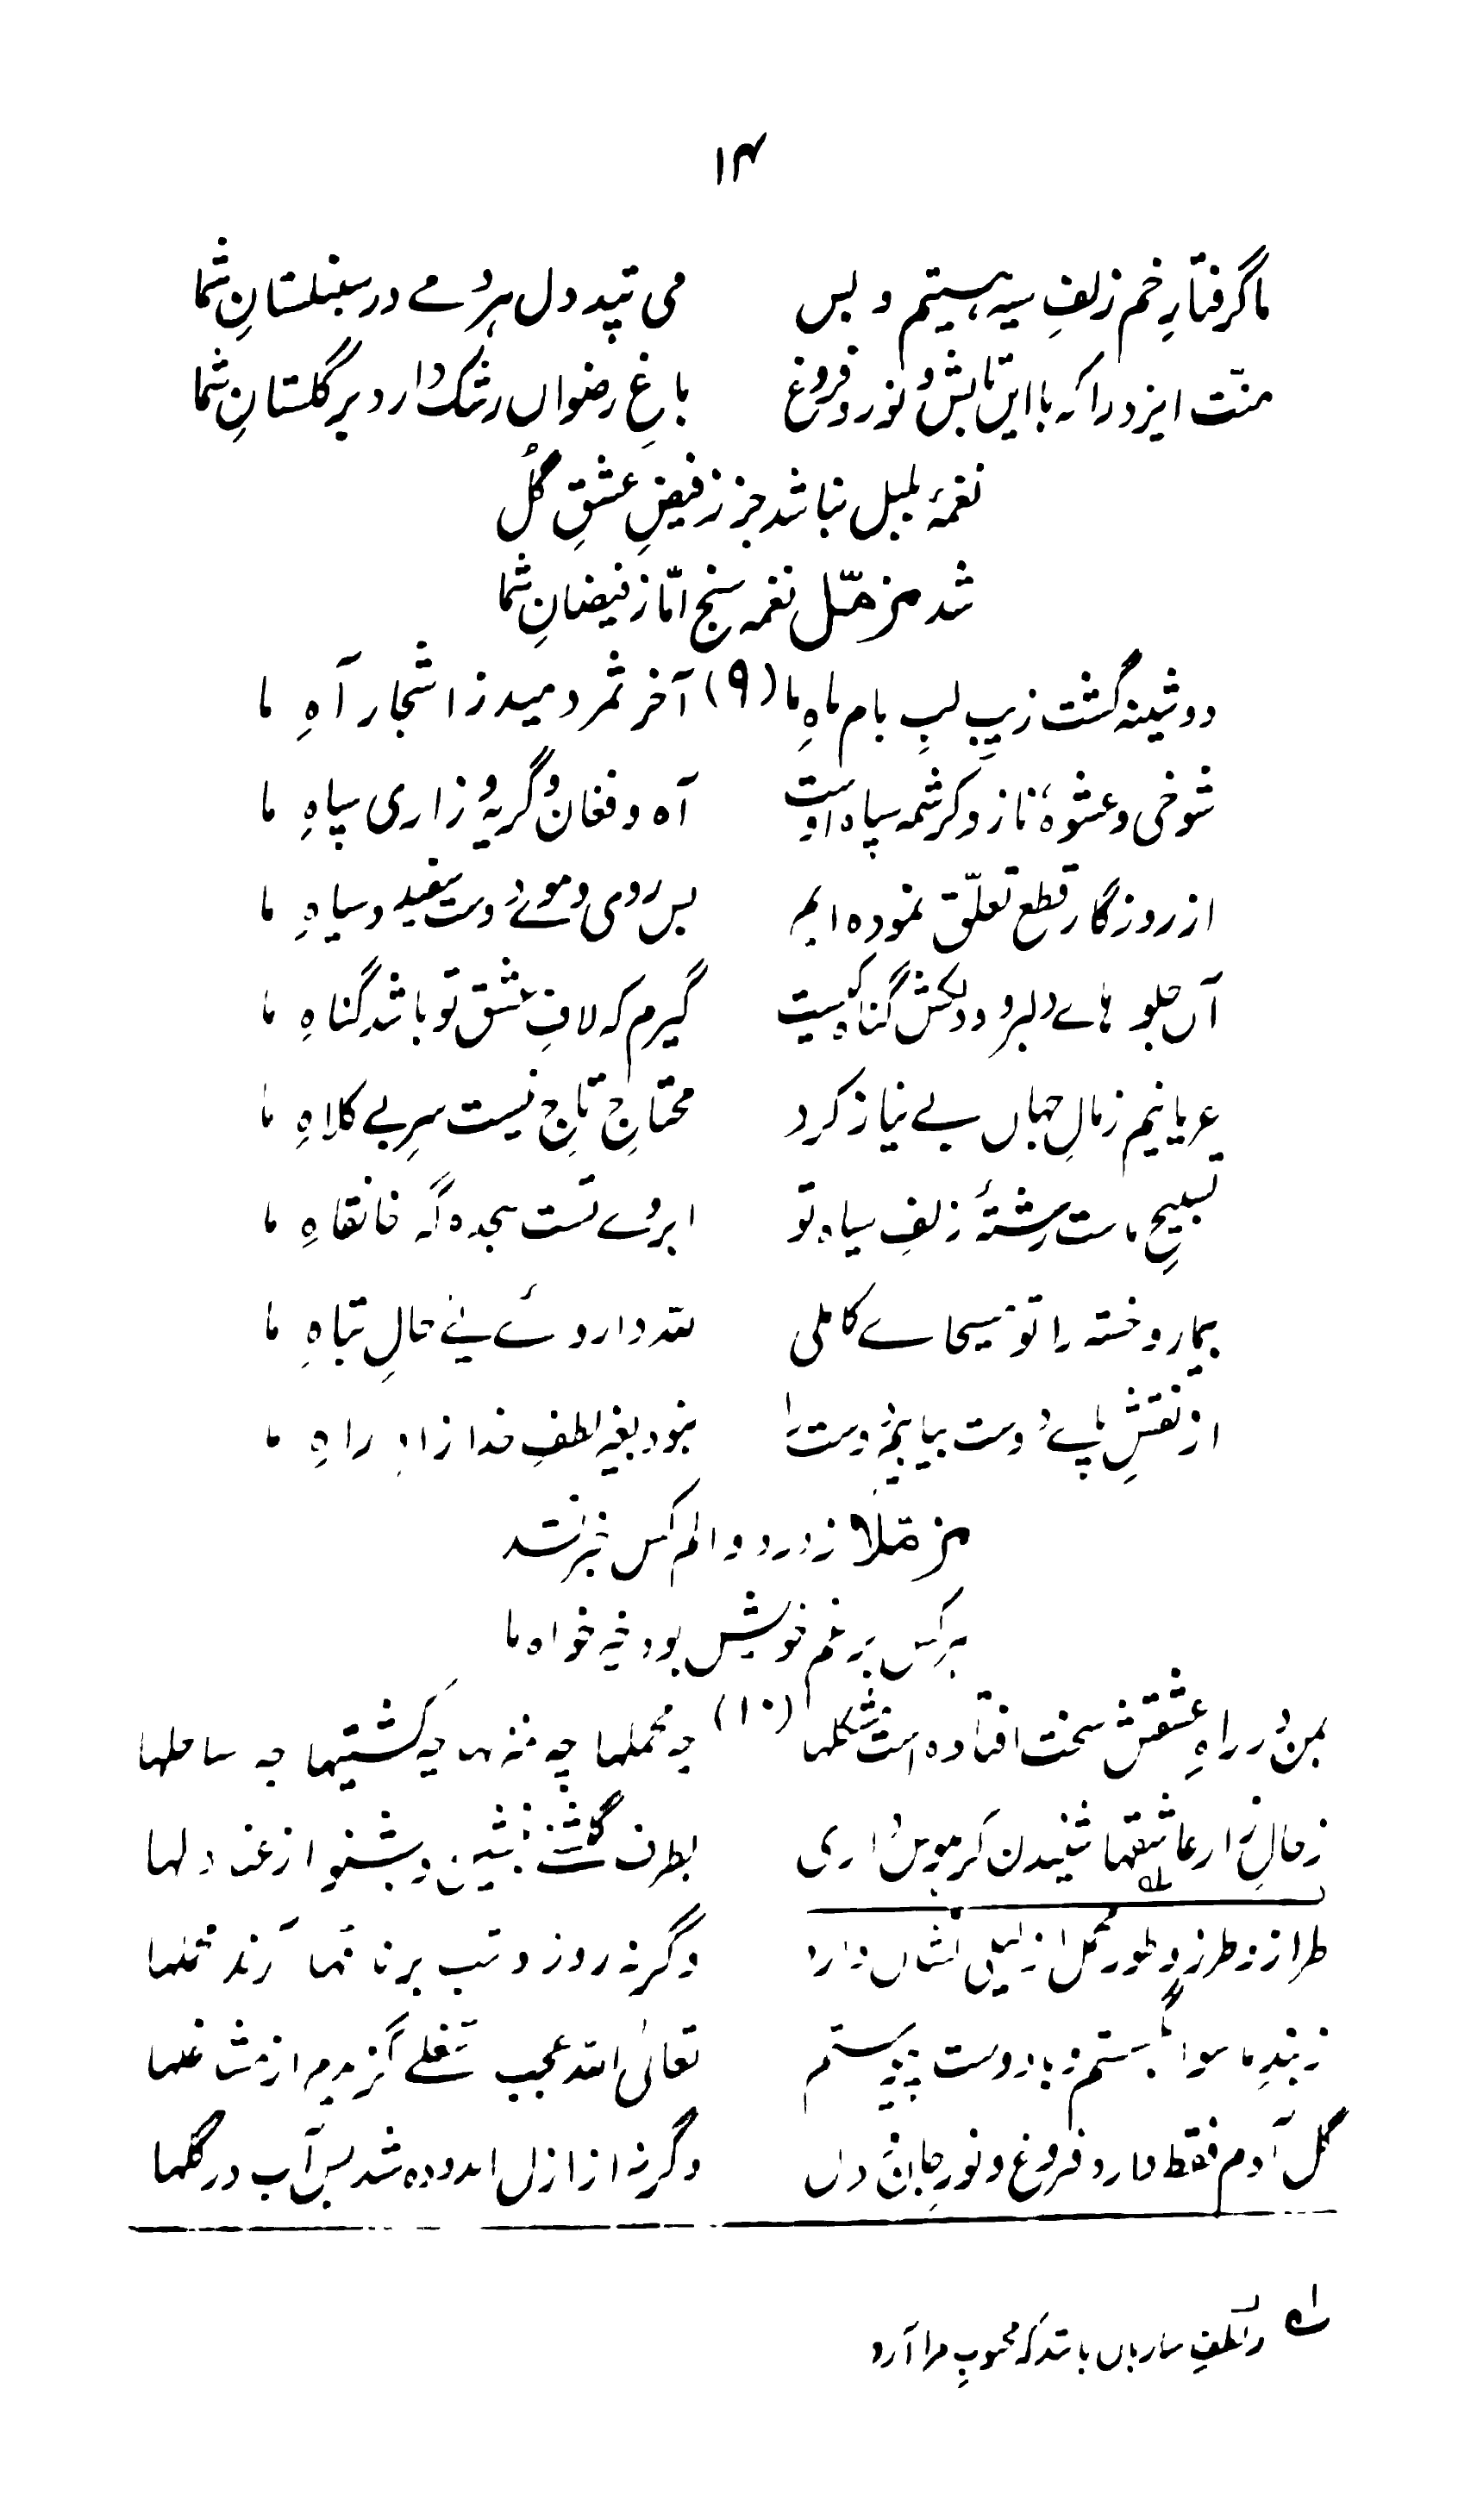 ۱۴
ما گرفتارِ خم زلفِ سیہ ہستیم و بس می تپد دل ہر دمے در سنبلستانِ شما
منّت ایزد را کہ با این تابش و نور و فروغ باغِ رضواں رشک دارد بر گلستانِ شما
نغمۂ بلبل نباشد جز ز فیضِ عشقِ گُل
شد مزمّل نغمہ سنج امّا ز فیضانِ شما
دوشینہ گشت زیبِ لبِ بام ماہِ ما (۹) آخر ثمر دمید ز اشجار آہِ ما
شوخی و عشوہ، ناز و کرشمہ سپاہ اوست آہ و فغان و گریہ و زاری سپاہِ ما
از روزگار قطع تعلّق نمودہ ایم بس روی و موئے دوست سفید و سیاہِ ما
آں جلوہ ہاے دلبر و دلکش گناہ کیست گیرم کہ لافِ عشق تو باشد گناہِ ما
عریانیم ز مالِ جہاں بے نیاز کرد محتاجِ تاج نیست سرِ بی کلاہِ ما
تسبیحِ ماست رشتۂ زلفِ سیاہ تو ابروے تست سجدہ گہ خانقاہِ ما
بیمار و خستہ را تو مسیحاے کاملی للہ داروئے پئے حالِ تباہِ ما
از نقشِ پاے دوست بیابیم دوست را نبود بغیر لطفِ خدا زادِ راہِ ما
مزمّلا ز درد و الم کس خبر نشد
ہر کس بہ غم خویش بود خیر خواہ ما
بمن در راہِ عشقش سخت افتادہ است مشکلہا (۱۰) چہ محملہا چہ منزلہا چہ کشتیہا چہ ساحلہا
ز حالِ زار عاشقہا شنیدن گر ہوس داری بطرف گلشنے بنشین و بشنو از عنادلہا
طراز و طرز و طور محمل از لیلیٰ نشاں دارد وگرنہ روز و شب بر ناقہا گردند محملہا
ز بندِ ماسوا جستم ز یاد دوست پیوستم تعالیٰ اللہ عجب شغلے گزیدم از مشاغلہا
گل آدم فقط دارد فروغ و نور جان و دل وگرنہ از ازل آلودہ شد بس آب در گلہا
؎ در آنکفِ سارباں باشد کہ محبوبِ مرا آرد